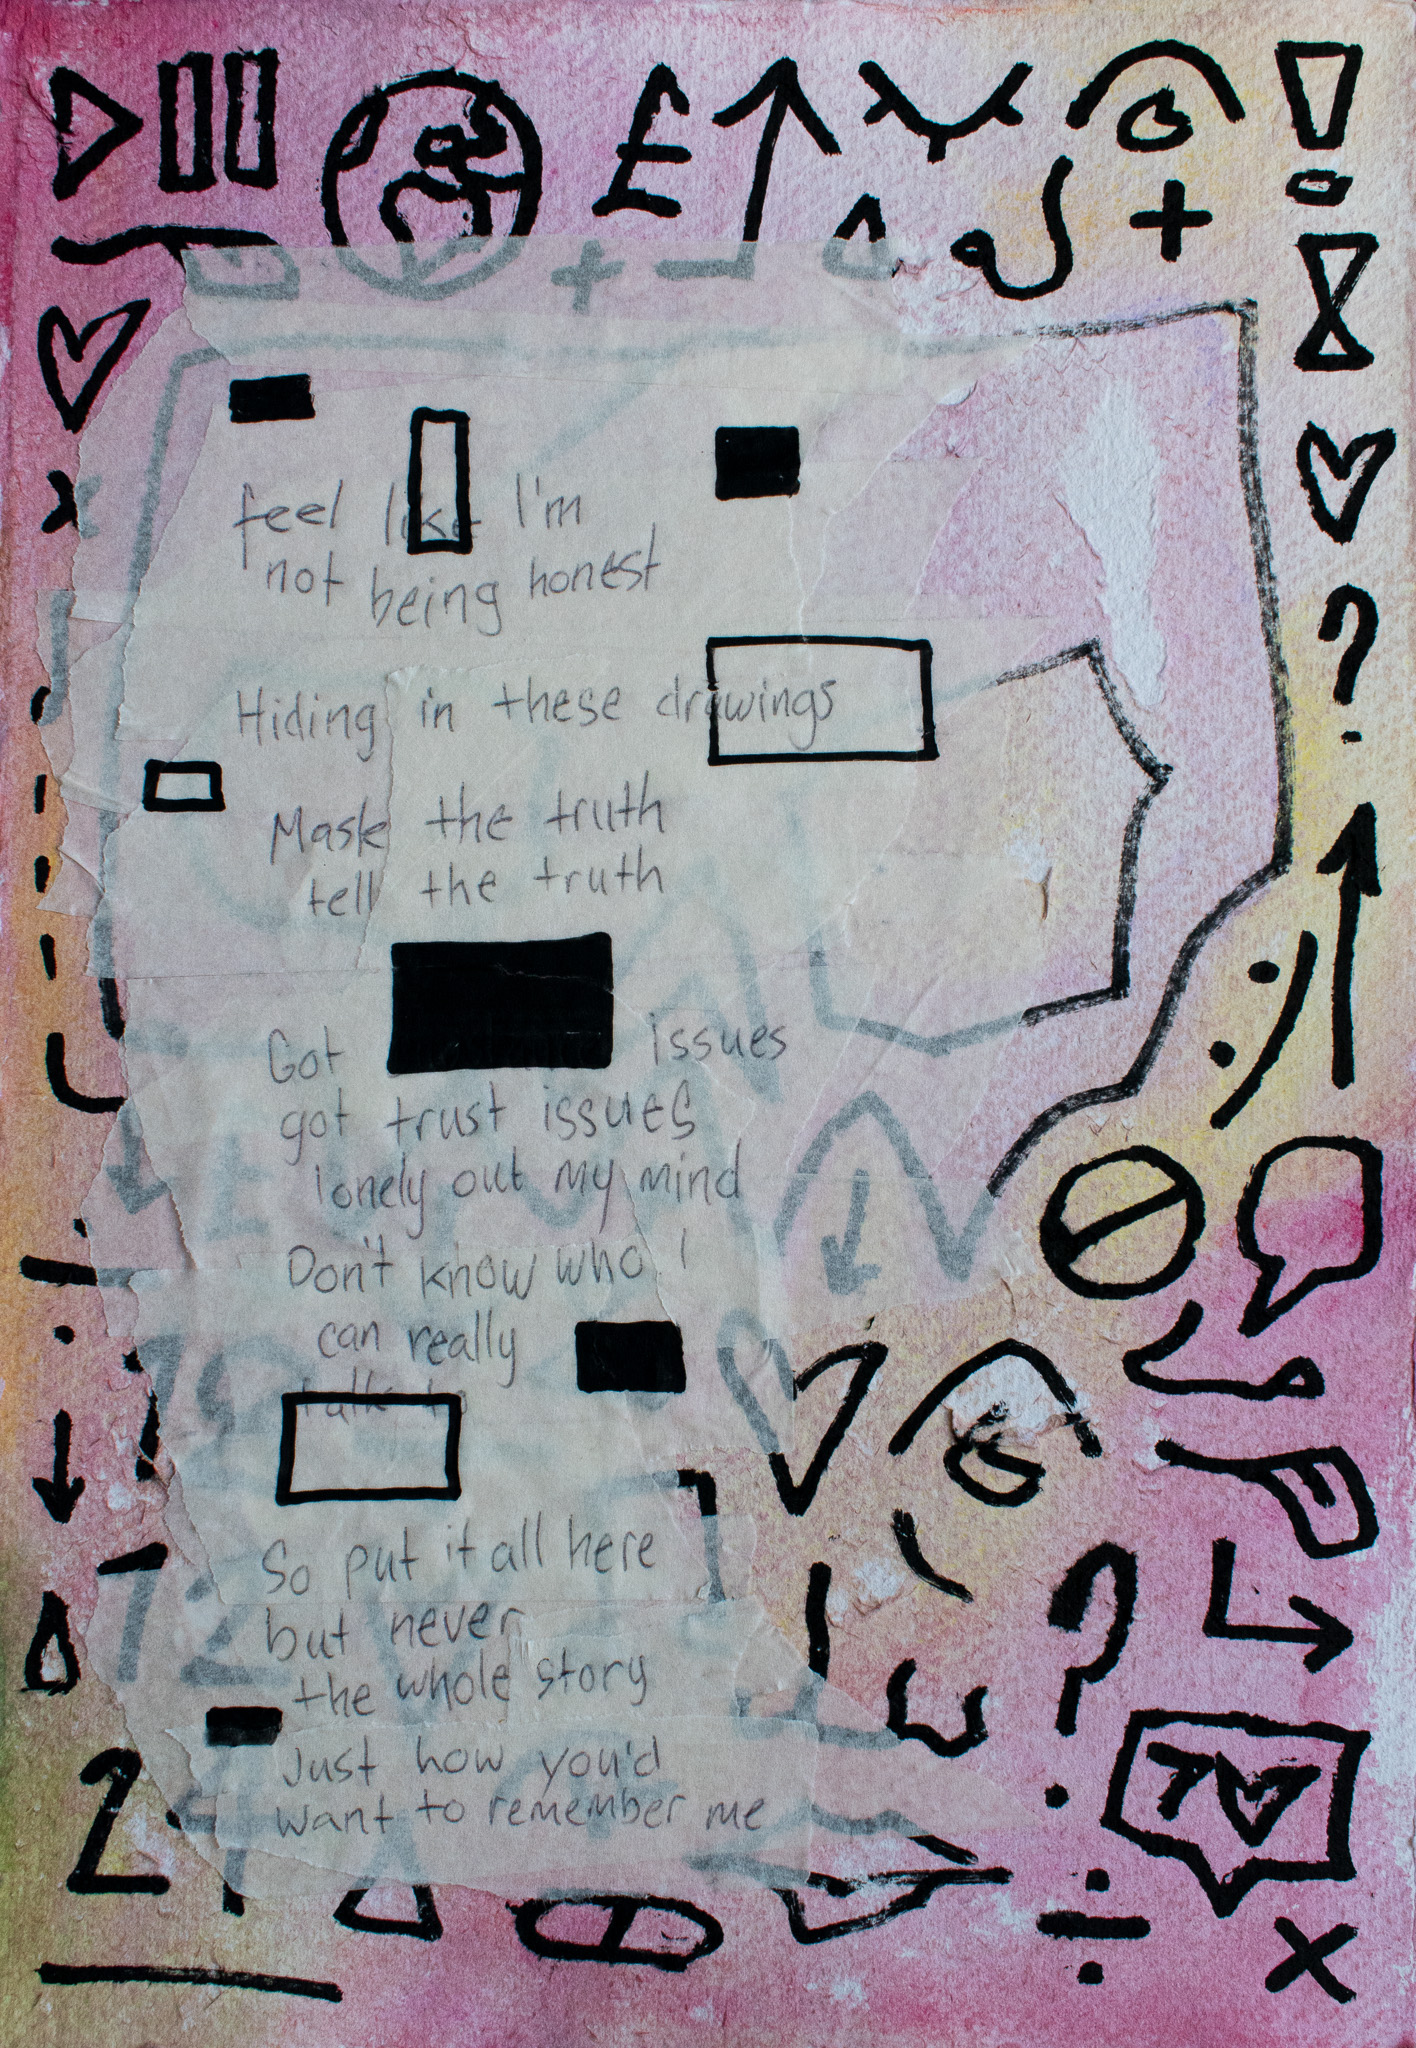 feel like I'm
not being honest
Hiding in these drawings
Mask the truth
tell the truth
Got issues
got trust issues
lonely out my mind
Don't know who I
can really
talk to
So put it all here
but never
the whole story
Just how you'd
want to remember me